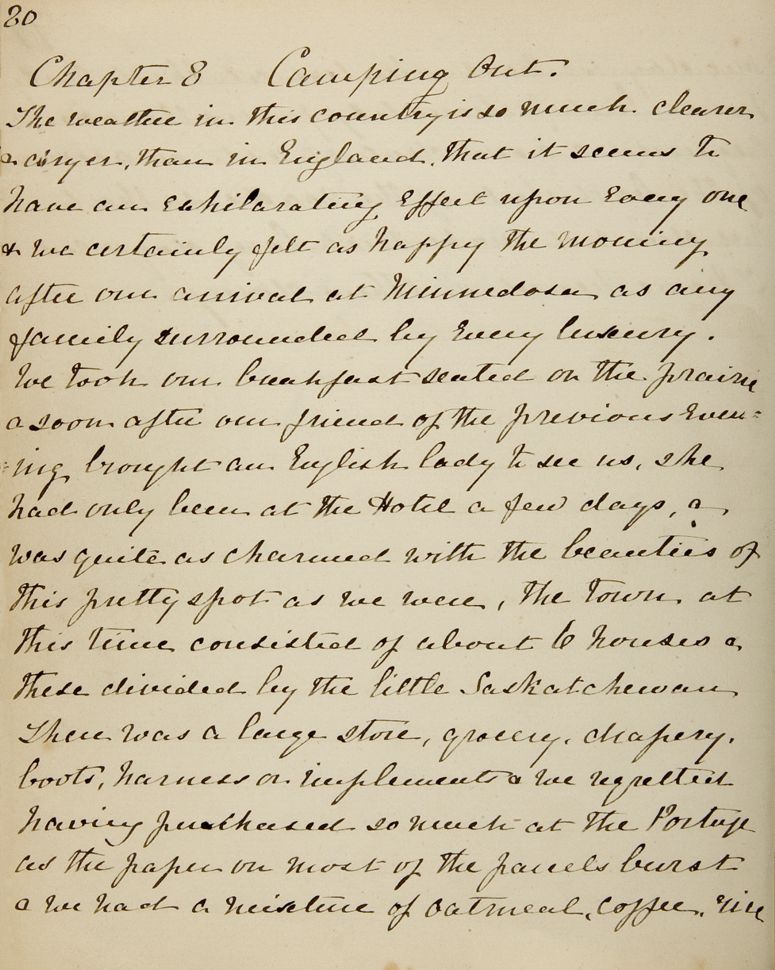 20
Chapter 8 Camping Out.
The weather in this country is so much clearer
& dryer, than in England, that it seems to
have an exhilarating Effect upon Every one
& we certainly felt as happy the morning
after our arrival at Minnedosa as any
family surrounded by Every luxury.
We took our breakfast seated on the prairie
& soon after our friend of the previous Even=
=ing brought an English lady to see us, she
had only been at the Hotel a few days, &
was quite as charmed with the beauties of
this pretty spot as we were, the town at
this time consisted of about 6 houses &
these divided by the little Saskatchewan
There was a large store, grocery, drapery,
boots, harness or implements & we regretted
having purchased so much at the Portage
as the paper on most of the parcels burst
& we had a mixture of oatmeal, coffee, rice